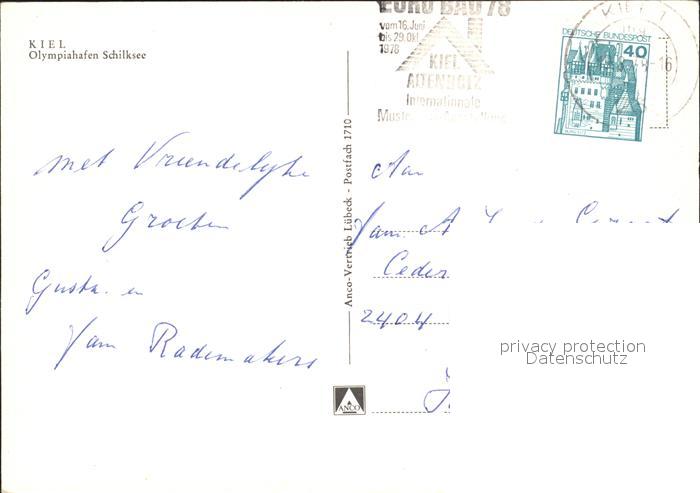 KIEL
Olympiahafen Schilksee
EURO BAU 78
vom 16. Juni
bis 29. Okt.
1978
KIEL
ALTENHOLZ
Internationale
KIEL 1
DEUTSCHE BUNDESPOST
40
met Vriendelijke
Groeten
Gusta. en
Jan Rademakers
Anco-Vertrieb Lübeck - Postfach 1710
ANCO
Aan
Ceder
2404
privacy protection
Datenschutz